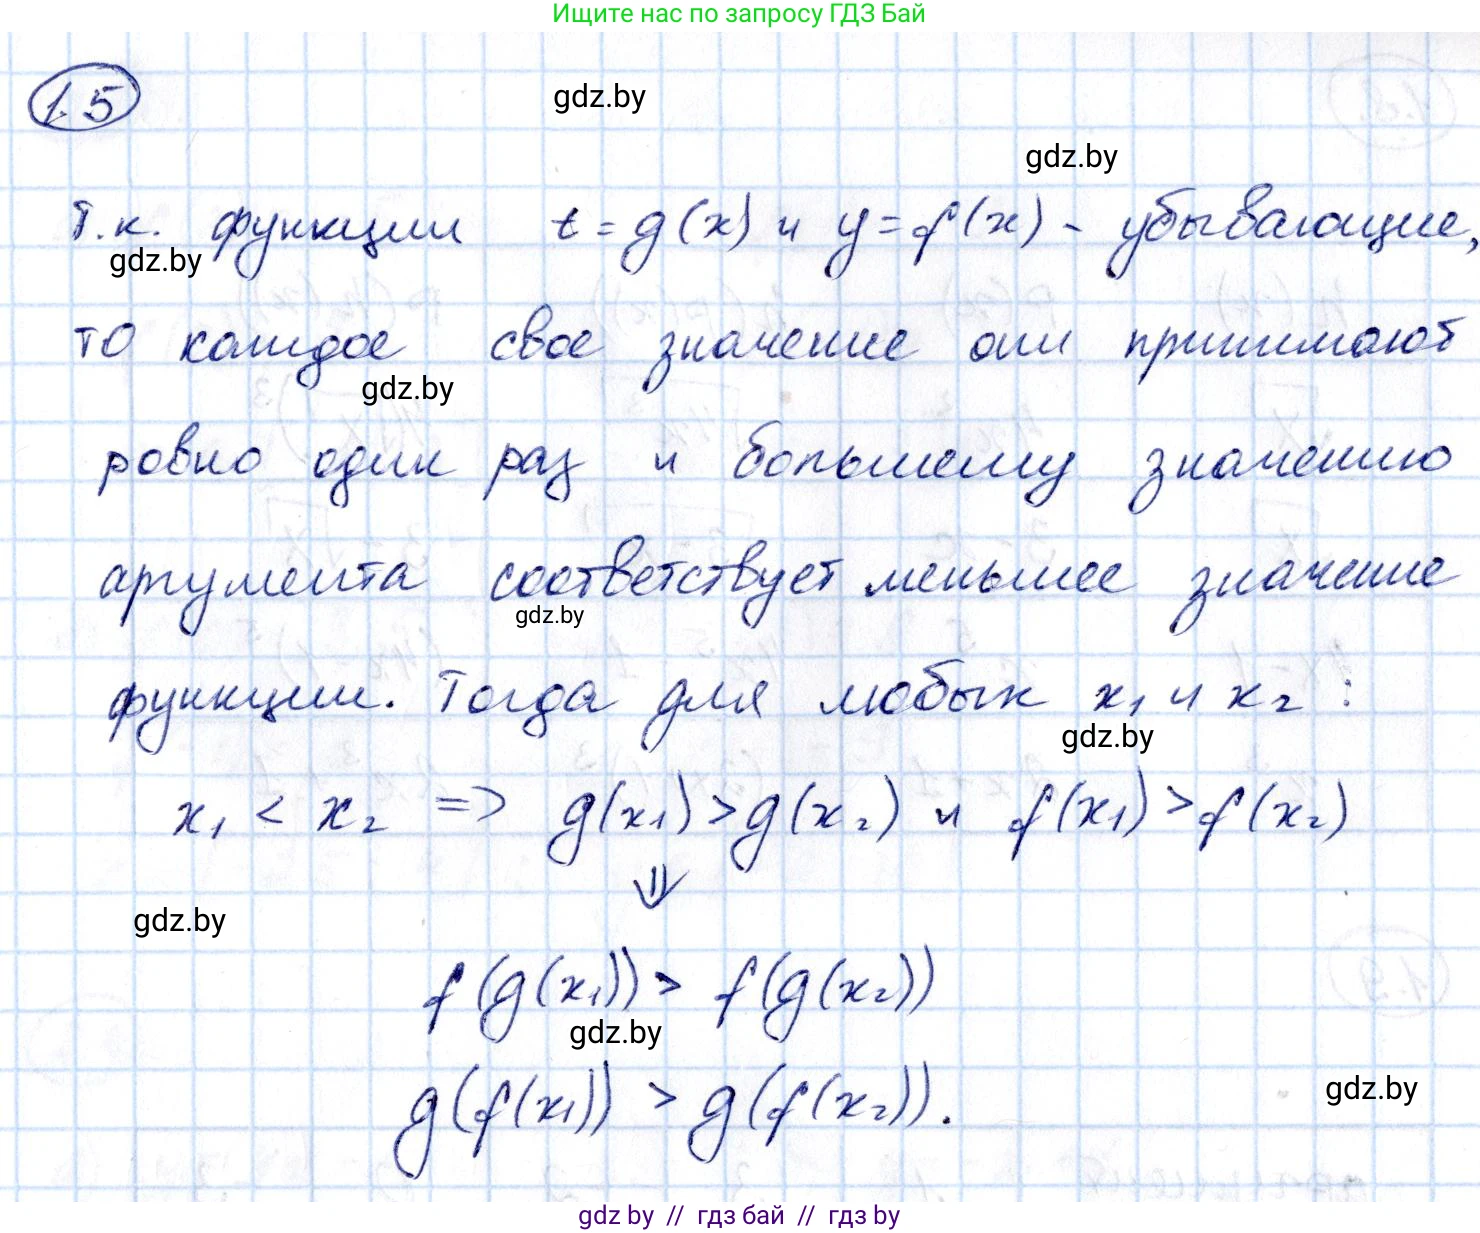 Ищите нас по запросу ГДЗ Бай
1.5
gdz.by
gdz.by
т.к. функции t = g(x) и y = f(x) - убывающие,
gdz.by
то каждое свое значение они принимают
gdz.by
ровно один раз и большему значению
аргумента соответствует меньшее значение
gdz.by
функции. Тогда для любых x₁ и x₂ :
gdz.by
x₁ < x₂ => g(x₁) > g(x₂) и f(x₁) > f(x₂)
⇓
gdz.by
f(g(x₁)) > f(g(x₂))
gdz.by
g(f(x₁)) > g(f(x₂)).
gdz.by
gdz by // гдз бай // гдз by